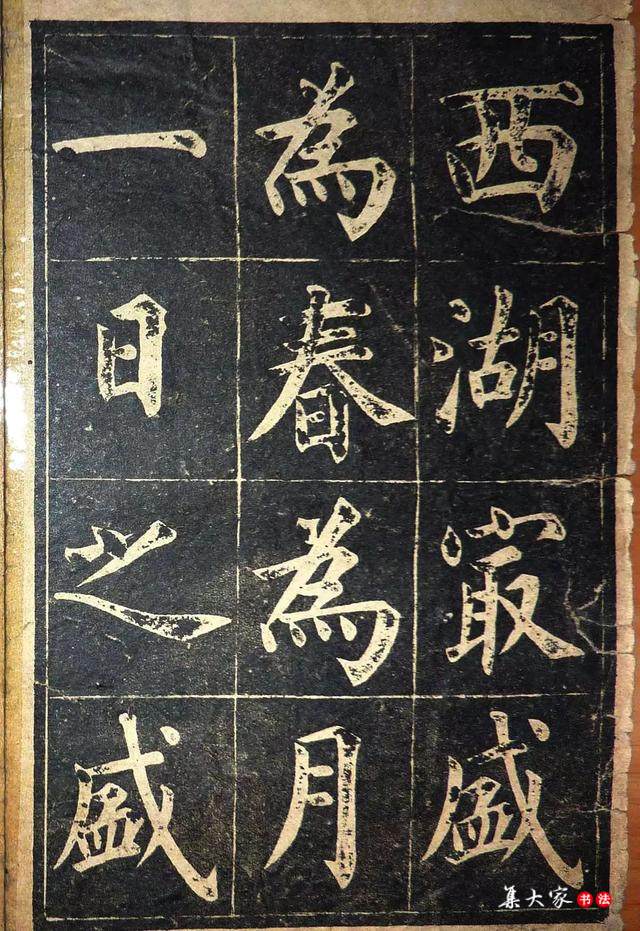 西湖寂盛
為春為月
一日之盛
集大家书法